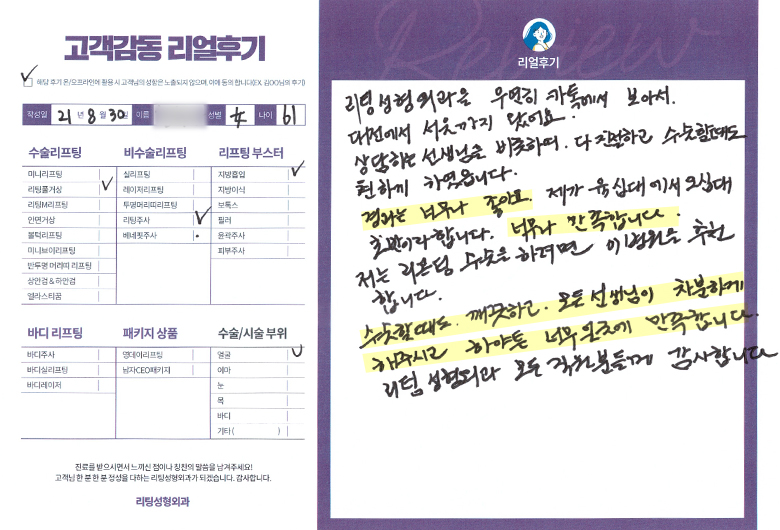 고객감동 리얼후기
해당 후기 온/오프라인에 활용 시 고객님의 성함은 노출되지 않으며, 이에 동의 합니다(EX. 김OO님의 후기)
작성일 21년 8월 30일 이름 성별 女 나이 61
수술리프팅 비수술리프팅 리프팅 부스터
미니리프팅 실리프팅 지방흡입
리팅풀거상 레이저리프팅 지방이식
리팅M리프팅 투명머리띠리프팅 보톡스
안면거상 리팅주사 필러
볼턱리프팅 베네핏주사 윤곽주사
미니브이리프팅 피부주사
반투명 머리띠 리프팅
상안검 & 하안검
엘라스티꿈
바디 리프팅 패키지 상품 수술/시술 부위
바디주사 영데이리프팅 얼굴
바디실리프팅 남자CEO패키지 이마
바디레이저 눈
목
바디
기타 ( )
진료를 받으시면서 느끼신 점이나 칭찬의 말씀을 남겨주세요!
고객님 한 분 한 분 정성을 다하는 리팅성형외과가 되겠습니다. 감사합니다.
리팅성형외과
Review
리얼후기
리팅성형외과을 우연히 카톡에서 보아서.
대전에서 서울까지 왔어요.
상담하는 선생님을 비롯하여. 다 친절하고 수술할때도
편하게 하였읍니다.
결과는 너무나 좋아요. 제가 육십대에서 오십대
초반이라합니다. 너무나 만족합니다.
저는 리프팅 수술을 하려면 이병원을 추천
합니다.
수술할때도. 깨끗하고. 모든선생님이 차분하게
해주시고 하야튼 너무 만족합니다.
리팅성형외과 모든 직원분들께 감사합니다